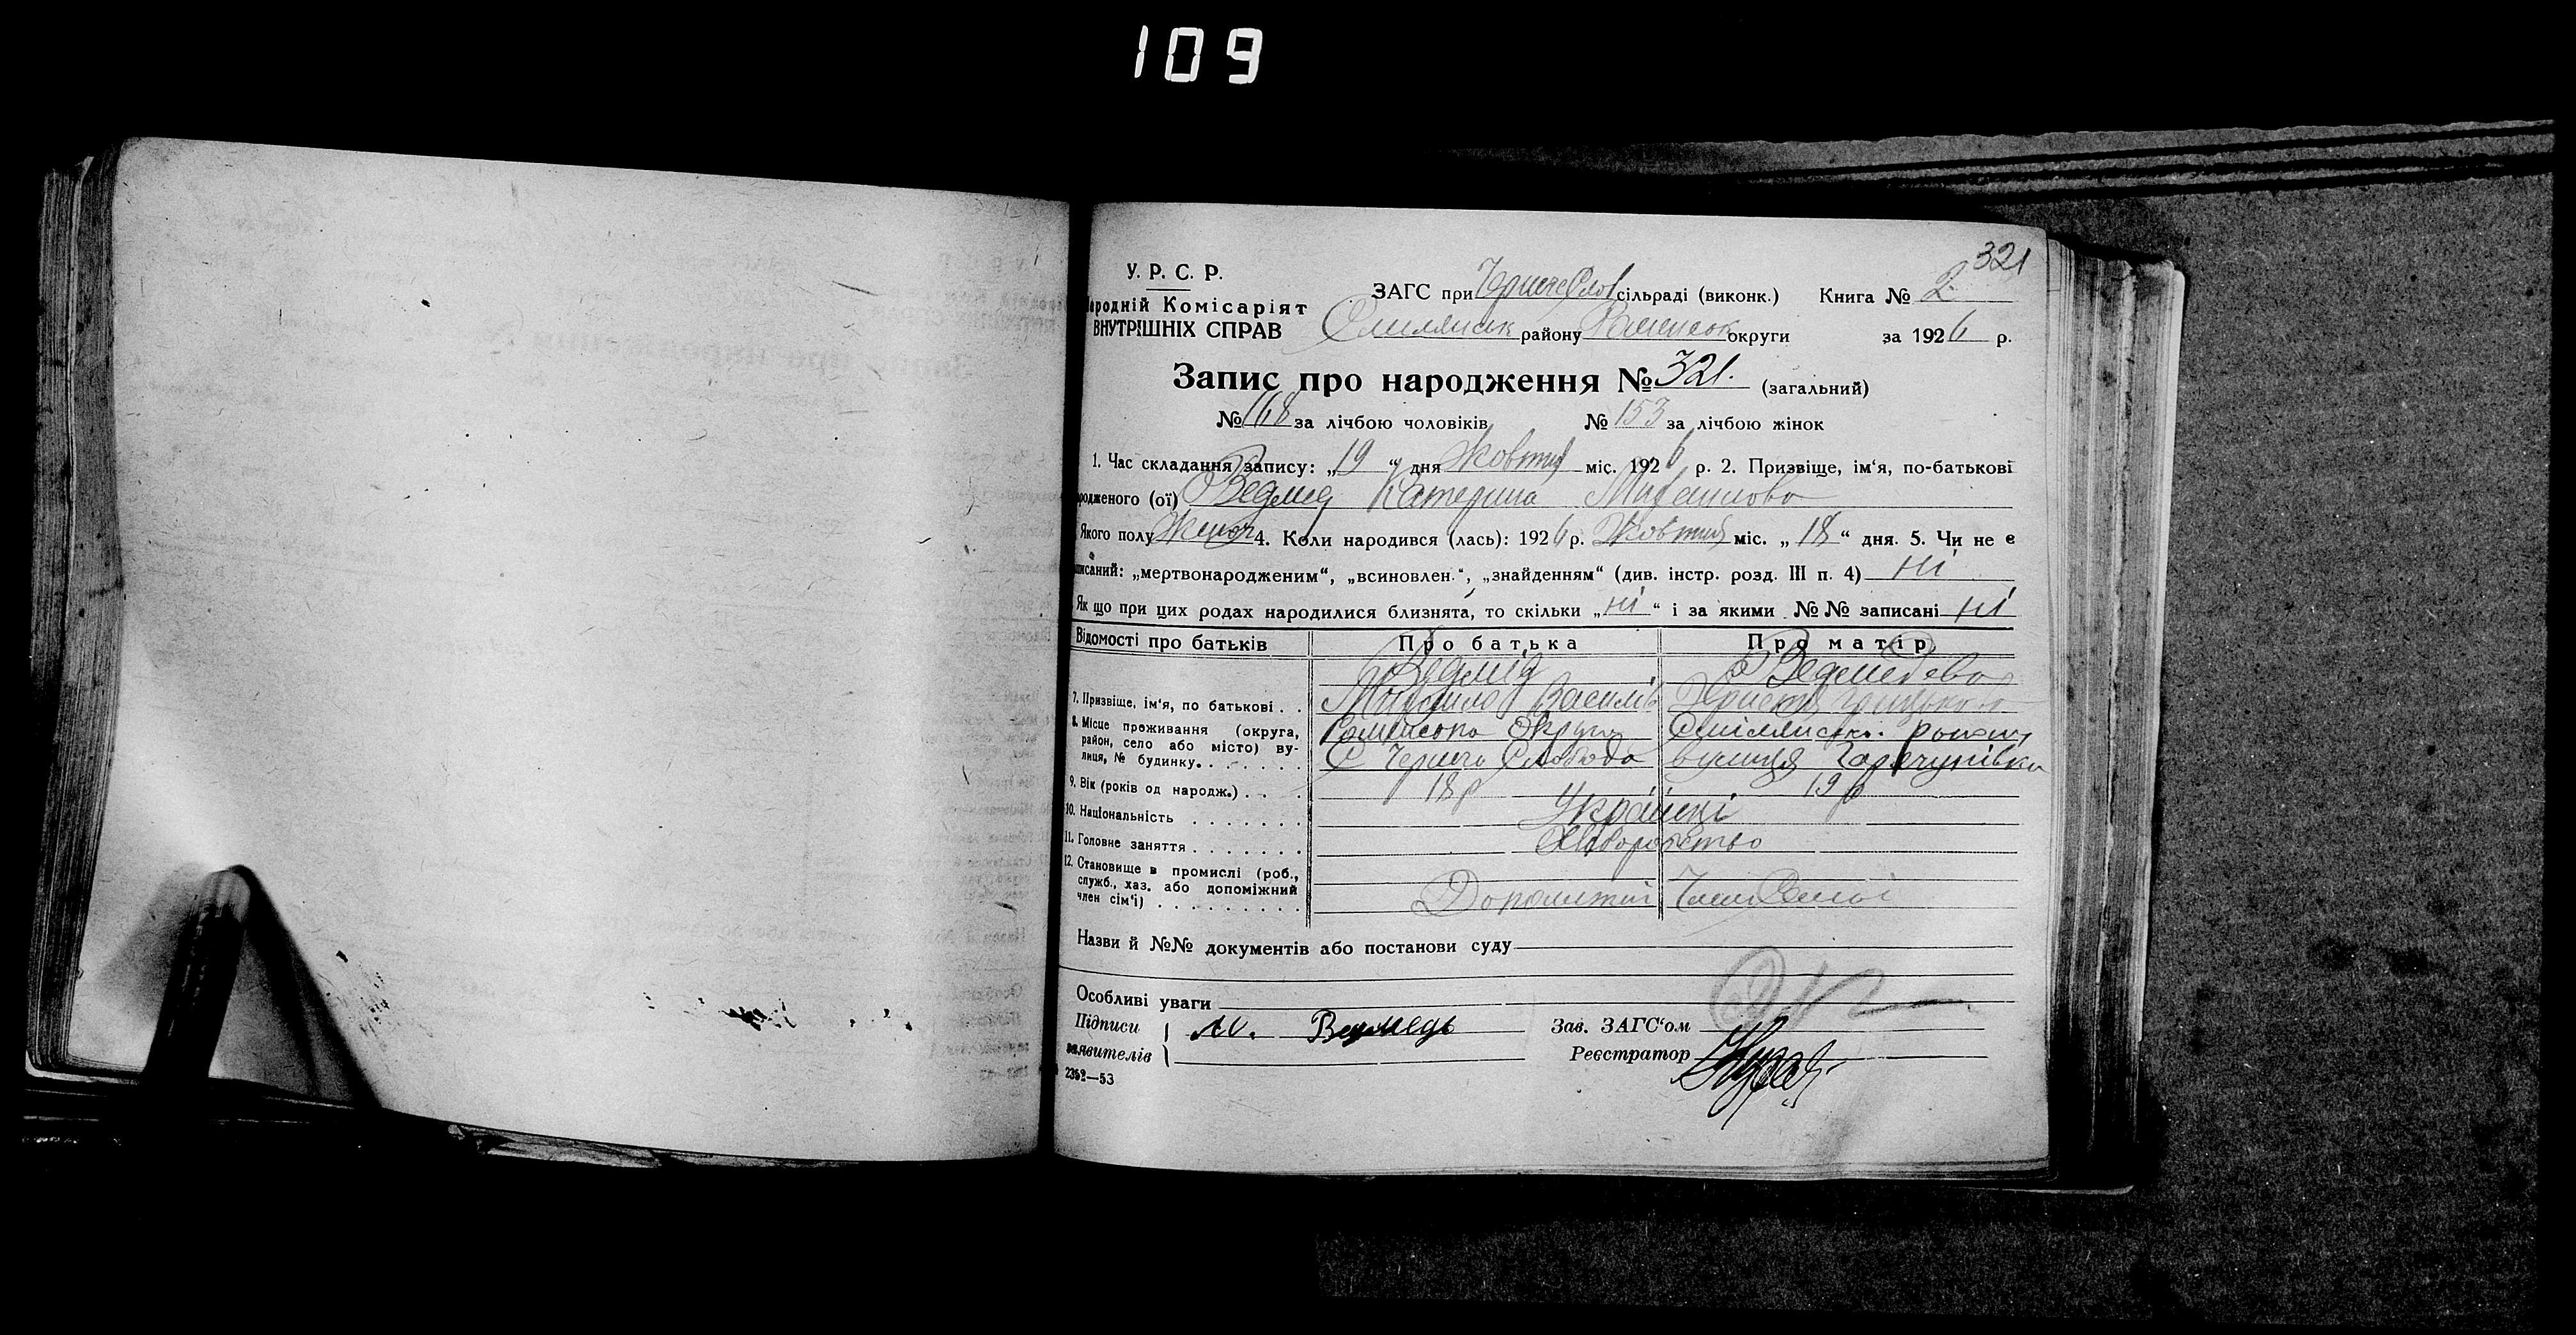 109
321
У. Р. С. Р.
Народній Комісаріят
ВНУТРІШНІХ СПРАВ
ЗАГС при ЧернечеСлоб сільраді (виконк.) Книга № 2
Смілянськ району Роменськ округи за 1926 р.
Запис про народження № 321. (загальний)
№ 168 за лічбою чоловіків № 153 за лічбою жінок
1. Час складання запису: „19“ дня Жовтня міс. 1926 р. 2. Призвіще, ім‘я, по-батькові
родженого (ої) Ведмідь Катерина Михайлова
Якого полу Жіноч 4. Коли народився (лась): 1926 р. Жовтня міс. „18“ дня. 5. Чи не є
писаний: „мертвонародженим“, „всиновлен.“, „знайденням“ (див. інстр. розд. III п. 4) ні
Як що при цих родах народилися близнята, то скільки „ні“ і за якими №№ записані ні
Відомості про батьків Про батька Про матір
Ведмідь Ведмедева
7. Призвіще, ім‘я, по батькові . . Михайло Василів Христя
8. Місце проживання (округа, район, село або місто) вулиця, № будинку. Роменська Округа Смілянськ. району
С Чернеча Слобода вулиця
9. Вік (років од народж.) . . . 18 р 19 р
10. Національність Українці
11. Головне заняття Хліборобство
12. Становище в промислі (роб.,
служб., хаз. або допоміжний
член сім‘ї) Допоміжні Член Семьі
Назви й №№ документів або постанови суду
Особливі уваги
Підписи М. Ведмедь Зав. ЗАГС‘ом
заявителів Реєстратор
2352—53